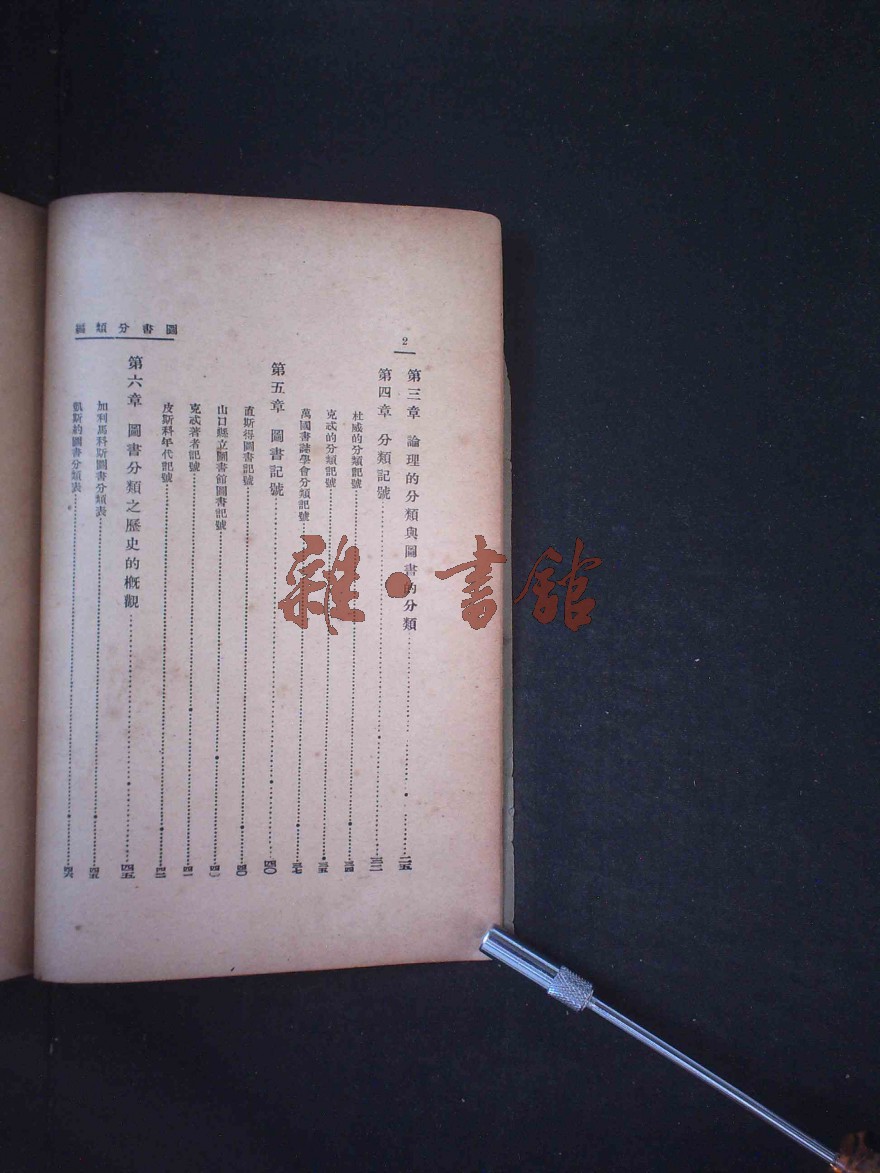 圖書分類
2
第三章 論理的分類與圖書的分類 二五
第四章 分類記號 三二
杜威的分類記號 三四
克忒的分類記號 三五
萬國書誌學會分類記號 三七
第五章 圖書記號 四〇
直斯得圖書記號 四〇
山口縣立圖書館圖書記號 四〇
克忒著者記號 四一
皮斯科年代記號 四二
第六章 圖書分類之歷史的概觀 四五
加利馬科斯圖書分類表 四五
凱斯的圖書分類表 四六
雜·書館